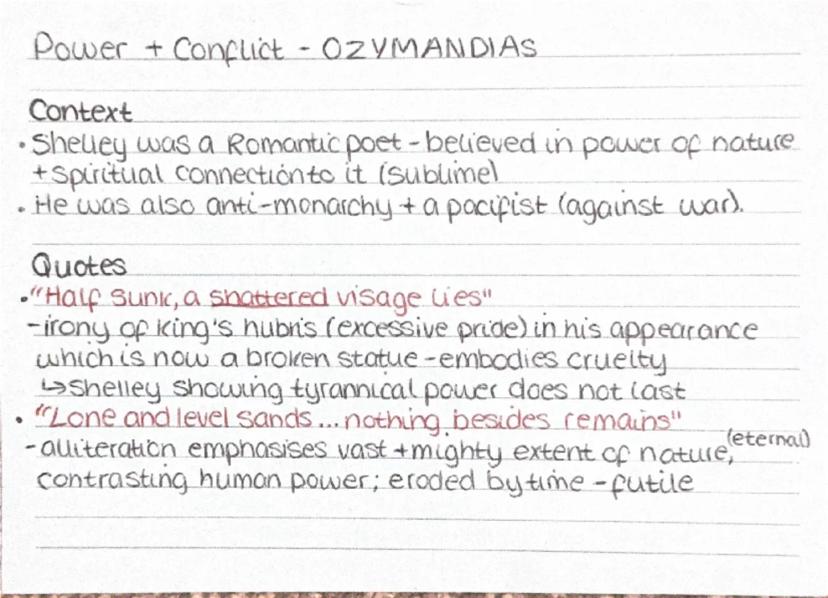 Power + Conflict - OZYMANDIAS
Context
• Shelley was a Romantic poet - believed in power of nature
+ spiritual connection to it (sublime)
• He was also anti-monarchy + a pacifist (against war).
Quotes
• "Half sunk, a shattered visage lies"
- irony of king's hubris (excessive pride) in his appearance
which is now a broken statue - embodies cruelty
↳ Shelley showing tyrannical power does not last
• "Lone and level sands ... nothing besides remains"
(eternal)
- alliteration emphasises vast + mighty extent of nature,
contrasting human power; eroded by time - futile